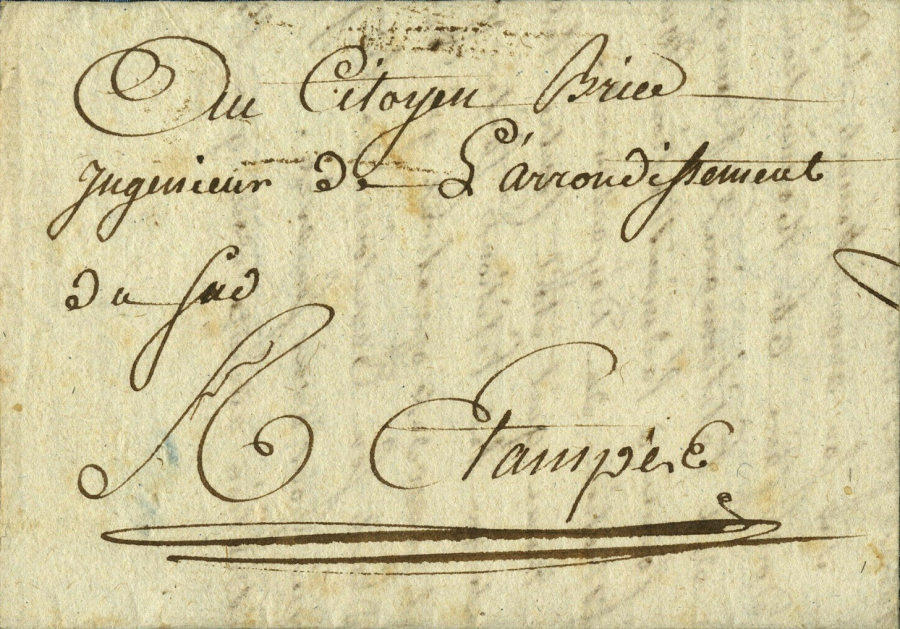 Au Citoyen Brice
Ingenieur de L'arrondissement
du Sud
A Etampes